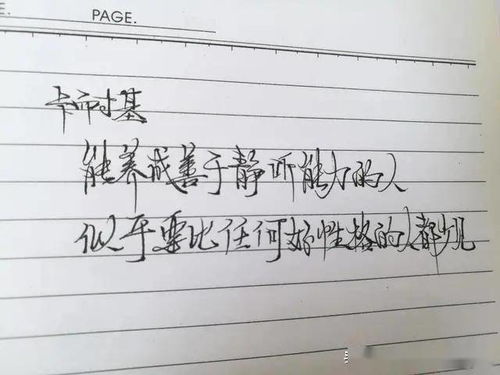 E.
PAGE.
卡耐基
能养成善于静听能力的人
似乎要比任何好性格的人都少见